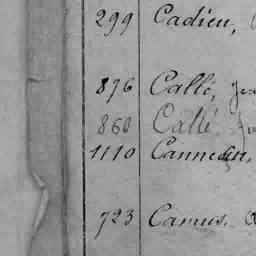 299 Cadieu,
876 Callé,
860 Callé
1110
723 Camus.